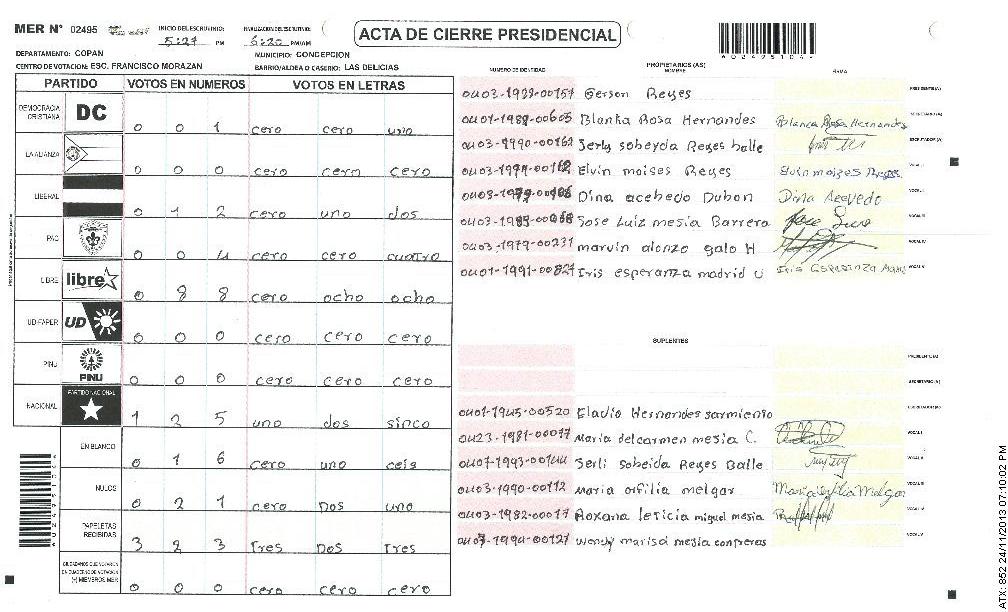 MER N° 02495
INICIO DEL ESCRUTINIO: 5:27 PM
FINALIZACION DEL ESCRUTINIO: 6:20 PM/AM
ACTA DE CIERRE PRESIDENCIAL
DEPARTAMENTO: COPAN
MUNICIPIO: CONCEPCION
CENTRO DE VOTACION: ESC. FRANCISCO MORAZAN
BARRIO/ALDEA O CASERIO: LAS DELICIAS
PARTIDO VOTOS EN NUMEROS VOTOS EN LETRAS
DEMOCRACIA CRISTIANA DC 0 0 1 cero cero uno
LA ALIANZA 0 0 0 cero cero cero
LIBERAL 0 1 2 cero uno dos
PAC 0 0 4 cero cero cuatro
LIBRE libre 0 8 8 cero ocho ocho
UD-FAPER UD 0 0 0 cero cero cero
PINU PINU 0 0 0 cero cero cero
NACIONAL PARTIDO NACIONAL 1 2 5 uno dos sinco
EN BLANCO 0 1 6 cero uno ceis
NULOS 0 2 1 cero Dos uno
PAPELETAS RECIBIDAS 3 2 3 Tres Dos Tres
CIUDADANOS QUE VOTARON EN CUADERNO DE VOTACION (+) MIEMBROS MER 0 0 0 cero cero cero
NUMERO DE IDENTIDAD PROPIETARIOS (AS) NOMBRE FIRMA
0403-1939-00157 Gerson Reyes PRESIDENTE(A)
0401-1989-00605 Blanka Rosa Hernandes Blanca Rosa Hernandes SECRETARIO(A)
0403-1990-00162 Serly sobeyda Reyes balle ESCRUTADOR(A)
Elvin moises Reyes Elvin moises Reyes VOCAL I
Dina acebedo Dubon Dina Acevedo VOCAL II
Jose Luiz mesia Barrera VOCAL III
0403-1979-00231 marvin alonzo galo H VOCAL IV
0401-1991-00827 Iris esperanza madrid U Iris Esperanza VOCAL V
SUPLENTES
PRESIDENTE(A)
SECRETARIO(A)
0401-1945-00520 Eladio Hernandes sarmiento ESCRUTADOR(A)
0423-1981-00017 Maria delcarmen mesia C. VOCAL I
0407-1993-00144 Serli sobeida Reyes Balle VOCAL II
0403-1990-00112 Maria orfilia melgar Maria orfilia Melgar VOCAL III
0403-1982-00017 Roxana leticia miguel mesia VOCAL IV
wendy marisol mesia contreras VOCAL V
ATX: 852 24/11/2013 07:10:02 PM